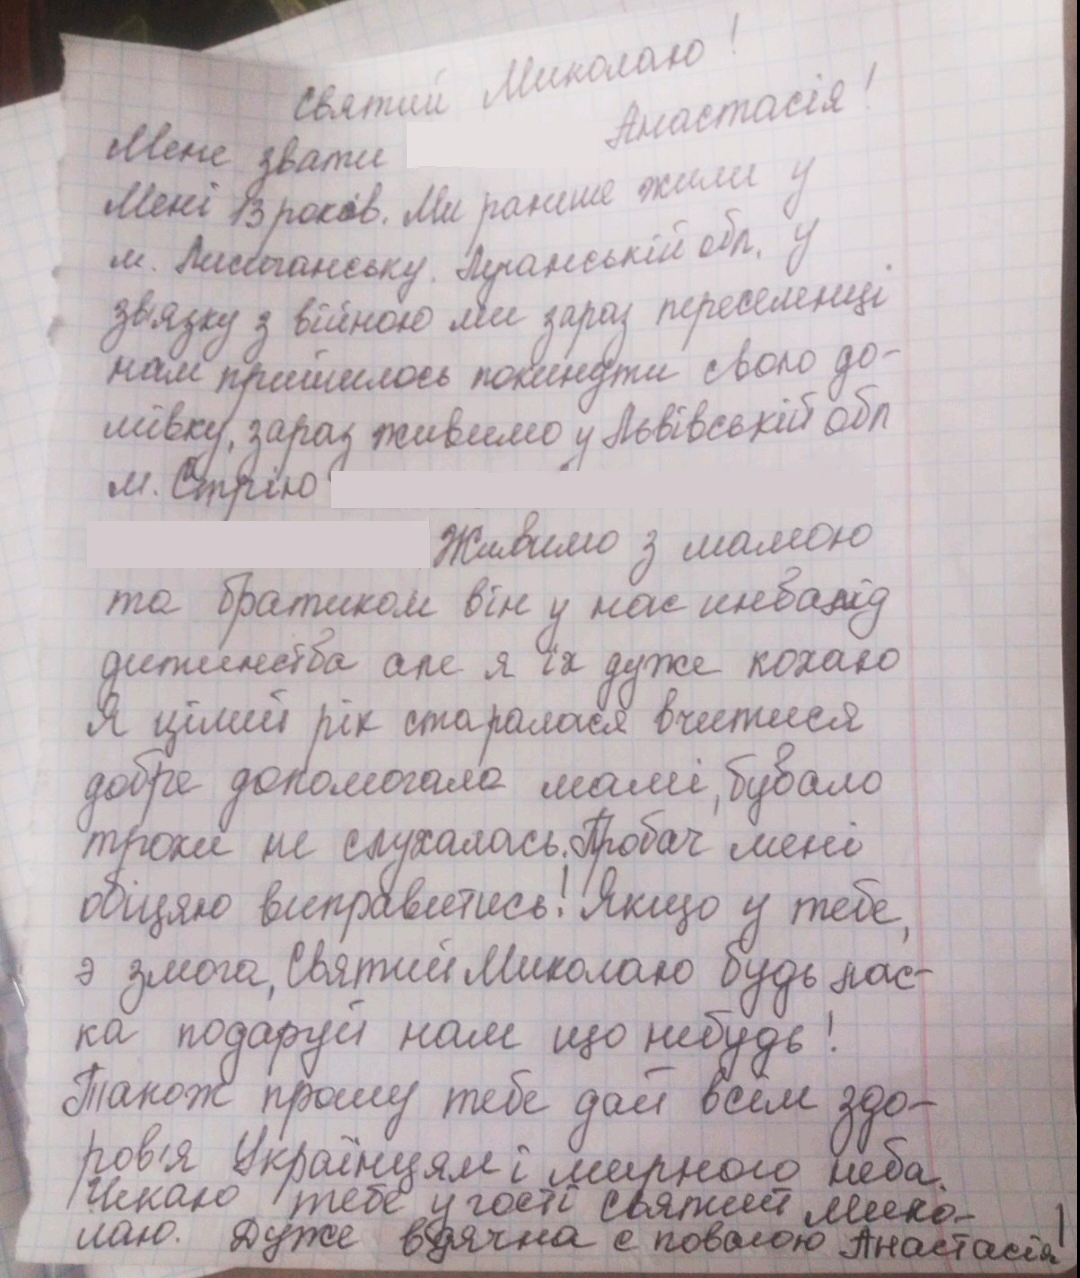 Святий Миколаю!
Мене звати Анастасія!
Мені 13 років. Ми раніше жили у
м. Лисичанську. Луганській обл. у
зв'язку з війною ми зараз переселенці
нам прийшлось покинути свою до-
мівку, зараз живимо у Львівській обл
м. Стрию
Живимо з мамою
та братиком він у нас инвалід
дитинства але я їх дуже кохаю
Я цілий рік старалася вчитися
добре допомогала мамі, бувало
трохи не слухалась. Пробач мені
обіцяю виправитись! Якщо у тебе,
э змога, Святий Миколаю будь лас-
ка подаруй нам що небудь!
Також прошу тебе дай всім здо-
ров'я Українцям і мирного неба.
Чекаю тебе у гості Святий Мико-
лаю. Дуже вдячна с повагою Анастасія!